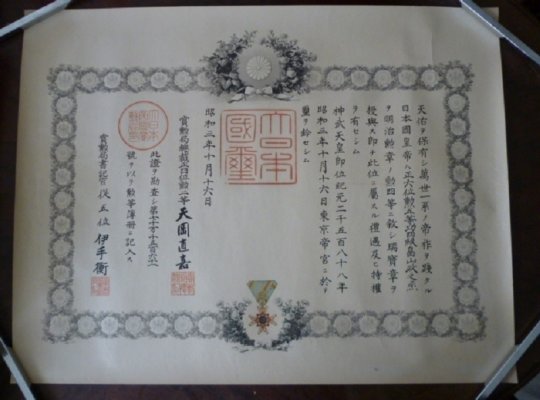 天佑ヲ保有シ萬世一系ノ帝祚ヲ踐タル
日本國皇帝ハ正六位勲五等功四級畠山政之
ヲ明治勲章ノ勲四等ニ敍シ瑞寶章ヲ
授與ス即チ此位ニ屬スル禮遇及ヒ特權
ヲ有セシム
神武天皇即位紀元二千五百八十八年
昭和三年十月十六日東京帝宮ニ於テ
璽ヲ鈐セシム
大日本國璽
昭和三年十月十六日
賞勲局總裁正四位勲二等天岡直嘉
此證ヲ勘査シ第
號ヲ以テ勲等簿冊ニ記入ス
賞勲局書記官從五位伊手衡